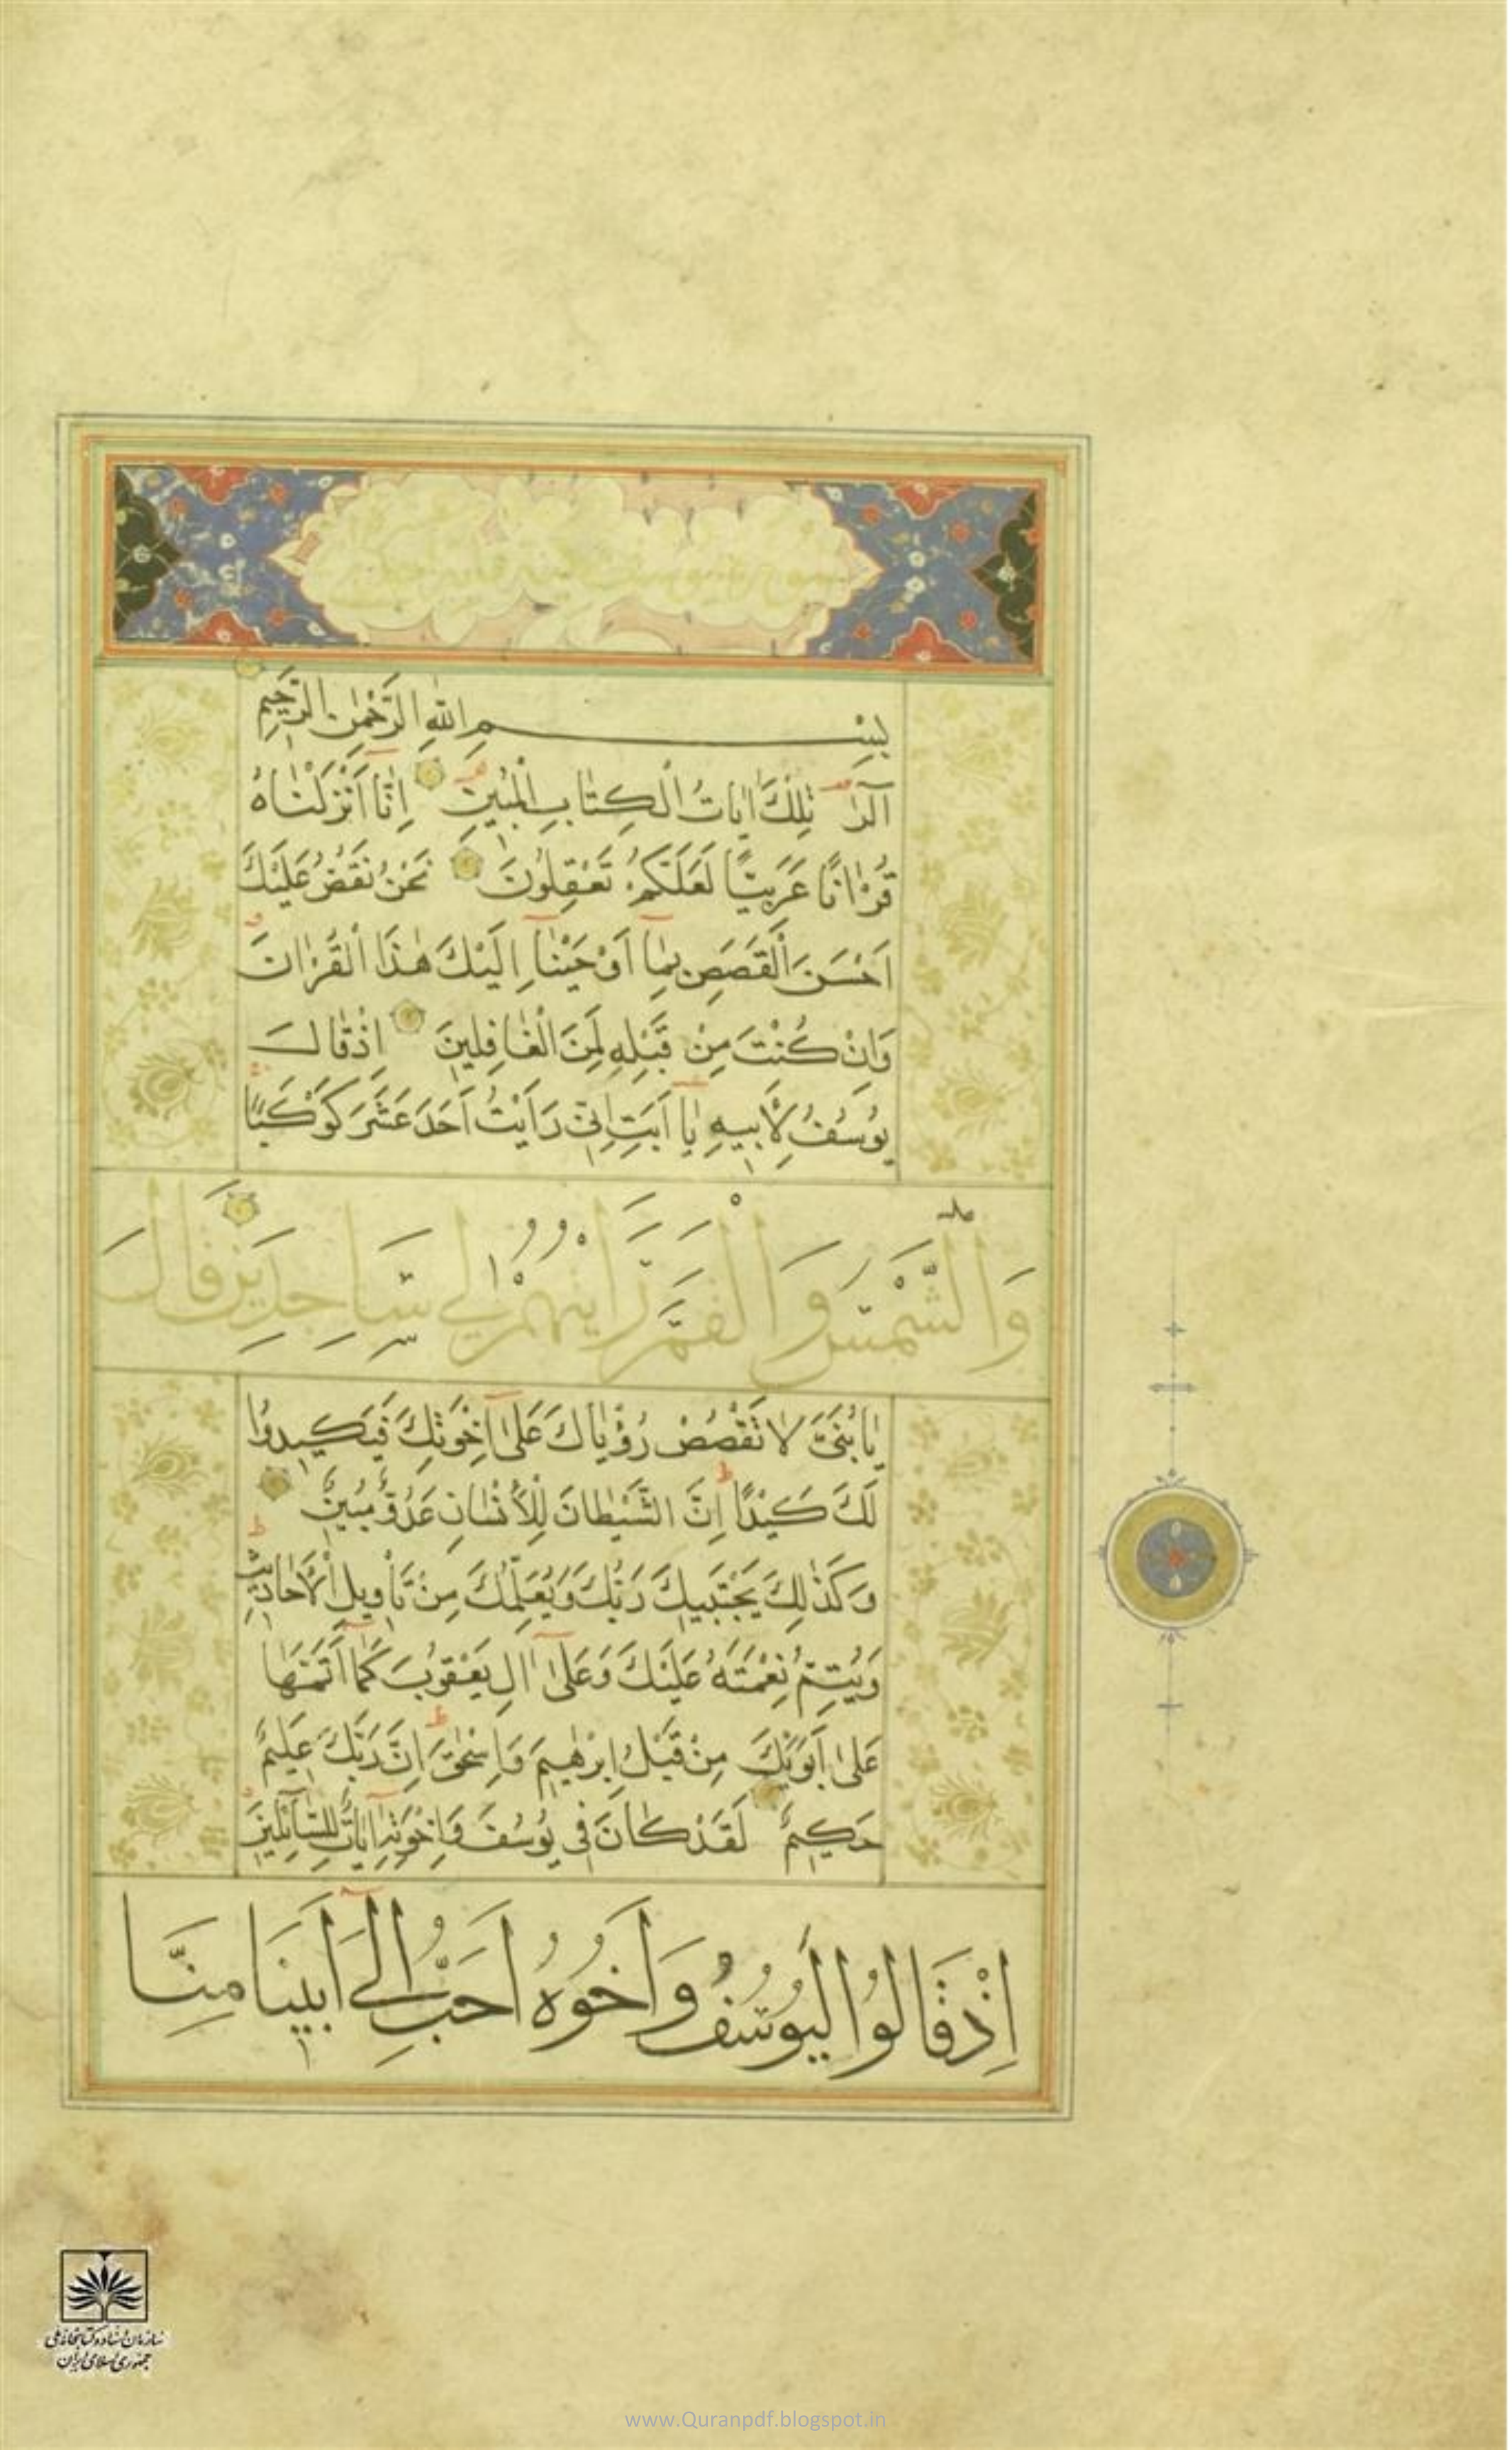 بِسْمِ اللهِ الرَّحْمٰنِ الرَّحِيمِ
الٓرٰ تِلْكَ اٰيَاتُ الْكِتَابِ الْمُبِينِ اِنَّا اَنْزَلْنَاهُ
قُرْاٰنًا عَرَبِيًّا لَعَلَّكُمْ تَعْقِلُونَ نَحْنُ نَقُصُّ عَلَيْكَ
اَحْسَنَ الْقَصَصِ بِمَٓا اَوْحَيْنَٓا اِلَيْكَ هٰذَا الْقُرْاٰنَ
وَاِنْ كُنْتَ مِنْ قَبْلِهِ لَمِنَ الْغَافِلِينَ اِذْ قَالَ
يُوسُفُ لِاَبِيهِ يَٓا اَبَتِ اِنِّي رَاَيْتُ اَحَدَ عَشَرَ كَوْكَبًا
وَالشَّمْسَ وَالْقَمَرَ رَاَيْتُهُمْ لِي سَاجِدِينَ قَالَ
يَا بُنَيَّ لَا تَقْصُصْ رُؤْيَاكَ عَلٰٓى اِخْوَتِكَ فَيَكِيدُوا
لَكَ كَيْدًا اِنَّ الشَّيْطَانَ لِلْاِنْسَانِ عَدُوٌّ مُبِينٌ
وَكَذٰلِكَ يَجْتَبِيكَ رَبُّكَ وَيُعَلِّمُكَ مِنْ تَاْوِيلِ الْاَحَادِيثِ
وَيُتِمُّ نِعْمَتَهُ عَلَيْكَ وَعَلٰٓى اٰلِ يَعْقُوبَ كَمَٓا اَتَمَّهَا
عَلٰٓى اَبَوَيْكَ مِنْ قَبْلُ اِبْرٰهِيمَ وَاِسْحٰقَ اِنَّ رَبَّكَ عَلِيمٌ
حَكِيمٌ لَقَدْ كَانَ فِي يُوسُفَ وَاِخْوَتِهِ اٰيَاتٌ لِلسَّٓائِلِينَ
اِذْ قَالُوا لَيُوسُفُ وَاَخُوهُ اَحَبُّ اِلٰٓى اَبِينَا مِنَّا
سازمان اسناد و کتابخانه ملی
جمهوری اسلامی ایران
www.Quranpdf.blogspot.in